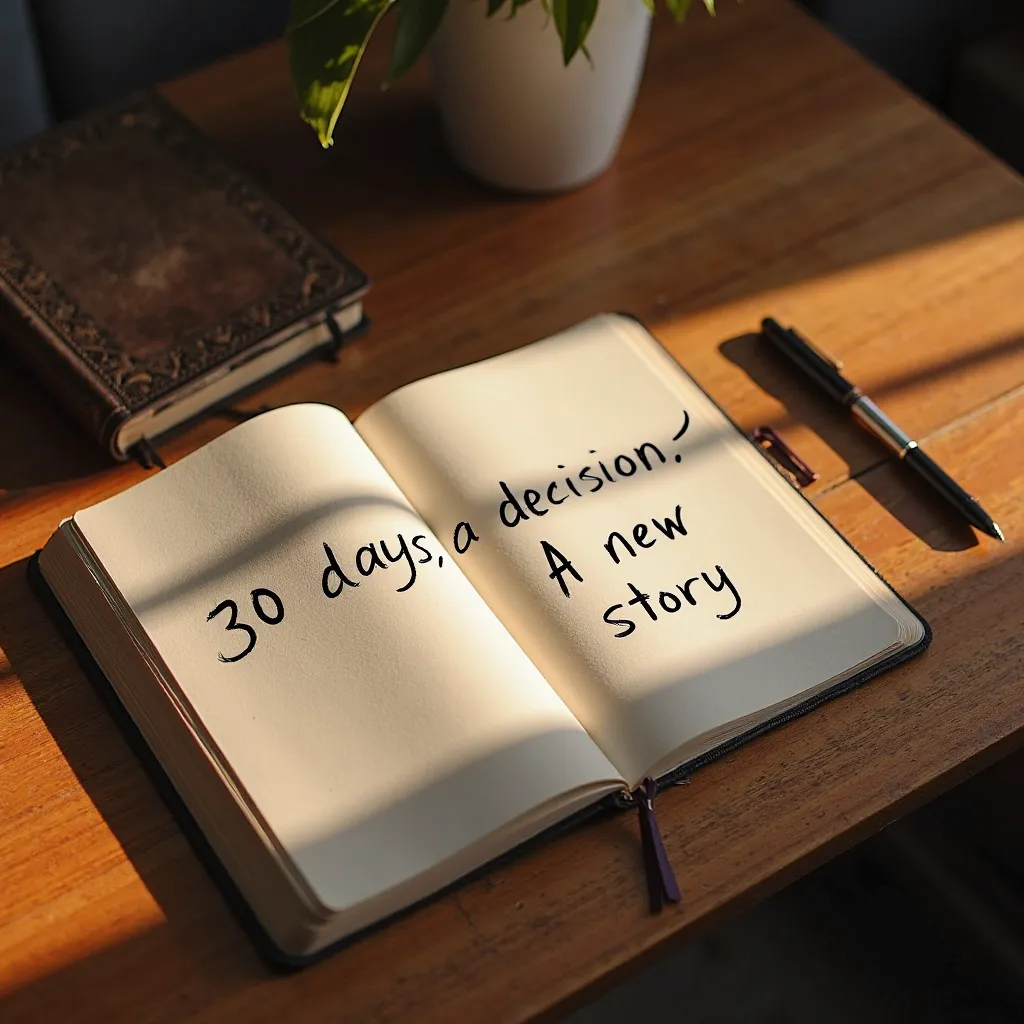 30 days, a decision.
A new
story